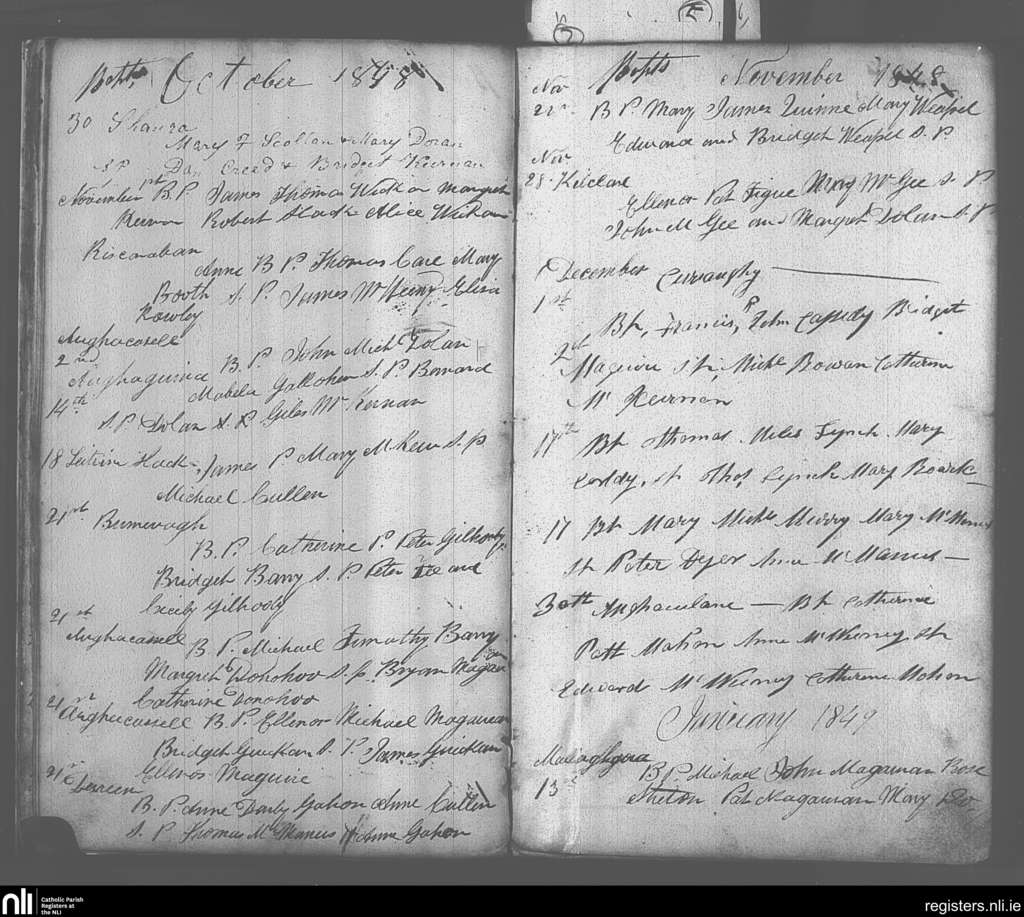 Bapts October 1848
30 Shanra
Mary F Scollan & Mary Doran
S P Dan Creed & Bridget Kiernan
November 1st B. P James Thomas Margret
Robert Slack Alice
Riscaraban
Anne B P. Thomas Care Mary
Booth S. P. James Mc Eliza
Rowley
Aughacasell
2nd
Aughaguinia B. P. John Mich Dolan
Mabela Gallohen S. P Bernard
14th
S. P. Dolan S. P Giles Mc Kernan
18 Leitrim James P Mary M Keon S. P
Michael Cullen
21st
B. P. Catherine P. Peter Gilhooly
Bridget Barry S. P. Peter and
Cicily Gilhooly
21st
Aughacasell B P. Michael Timothy Barry
Margret Donohoo S. p. Bryan
Catherine Donohoo
21st
Aughacasell B. P. Ellenor Michael Magauran
Bridget Guickan S. P. James Guickan
Ellenor Maguire
21st
B. P. Anne Darby Gahon Anne Cullen
S. P Thomas Mc Manus Anne Gahon
Nov Bapts November 1848
21st B P. Mary James Quinne Mary Weapel
Edward and Bridget Weapel S. P
Nov
28 Kilclare
Ellenor Pat Tigue Mary Mc Gee S P
John M Gee and Margret Dolan S. P
December Curraughy
1st
Bp, Francis, P John Cassidy Bridget
2d
Maguire Sp, Michl Rowan Catherine
Mc Keernan
17th Bp Thomas Miles Lynch Mary
Coddy, Sp Thos Lynch Mary Rourk
17 Bp Mary Michl Murry Mary Mc
Sp Peter Dyer Anne McManus
30th Bp Catherine
Patt Mahon Anne Sp
Edward Mc Weeney Catherine Mahon
January 1849
B P Michael John Magauran Rose
13th
Shelton Pat Magauran Mary Do
nli
Catholic Parish
Registers at
the NLI
registers.nli.ie